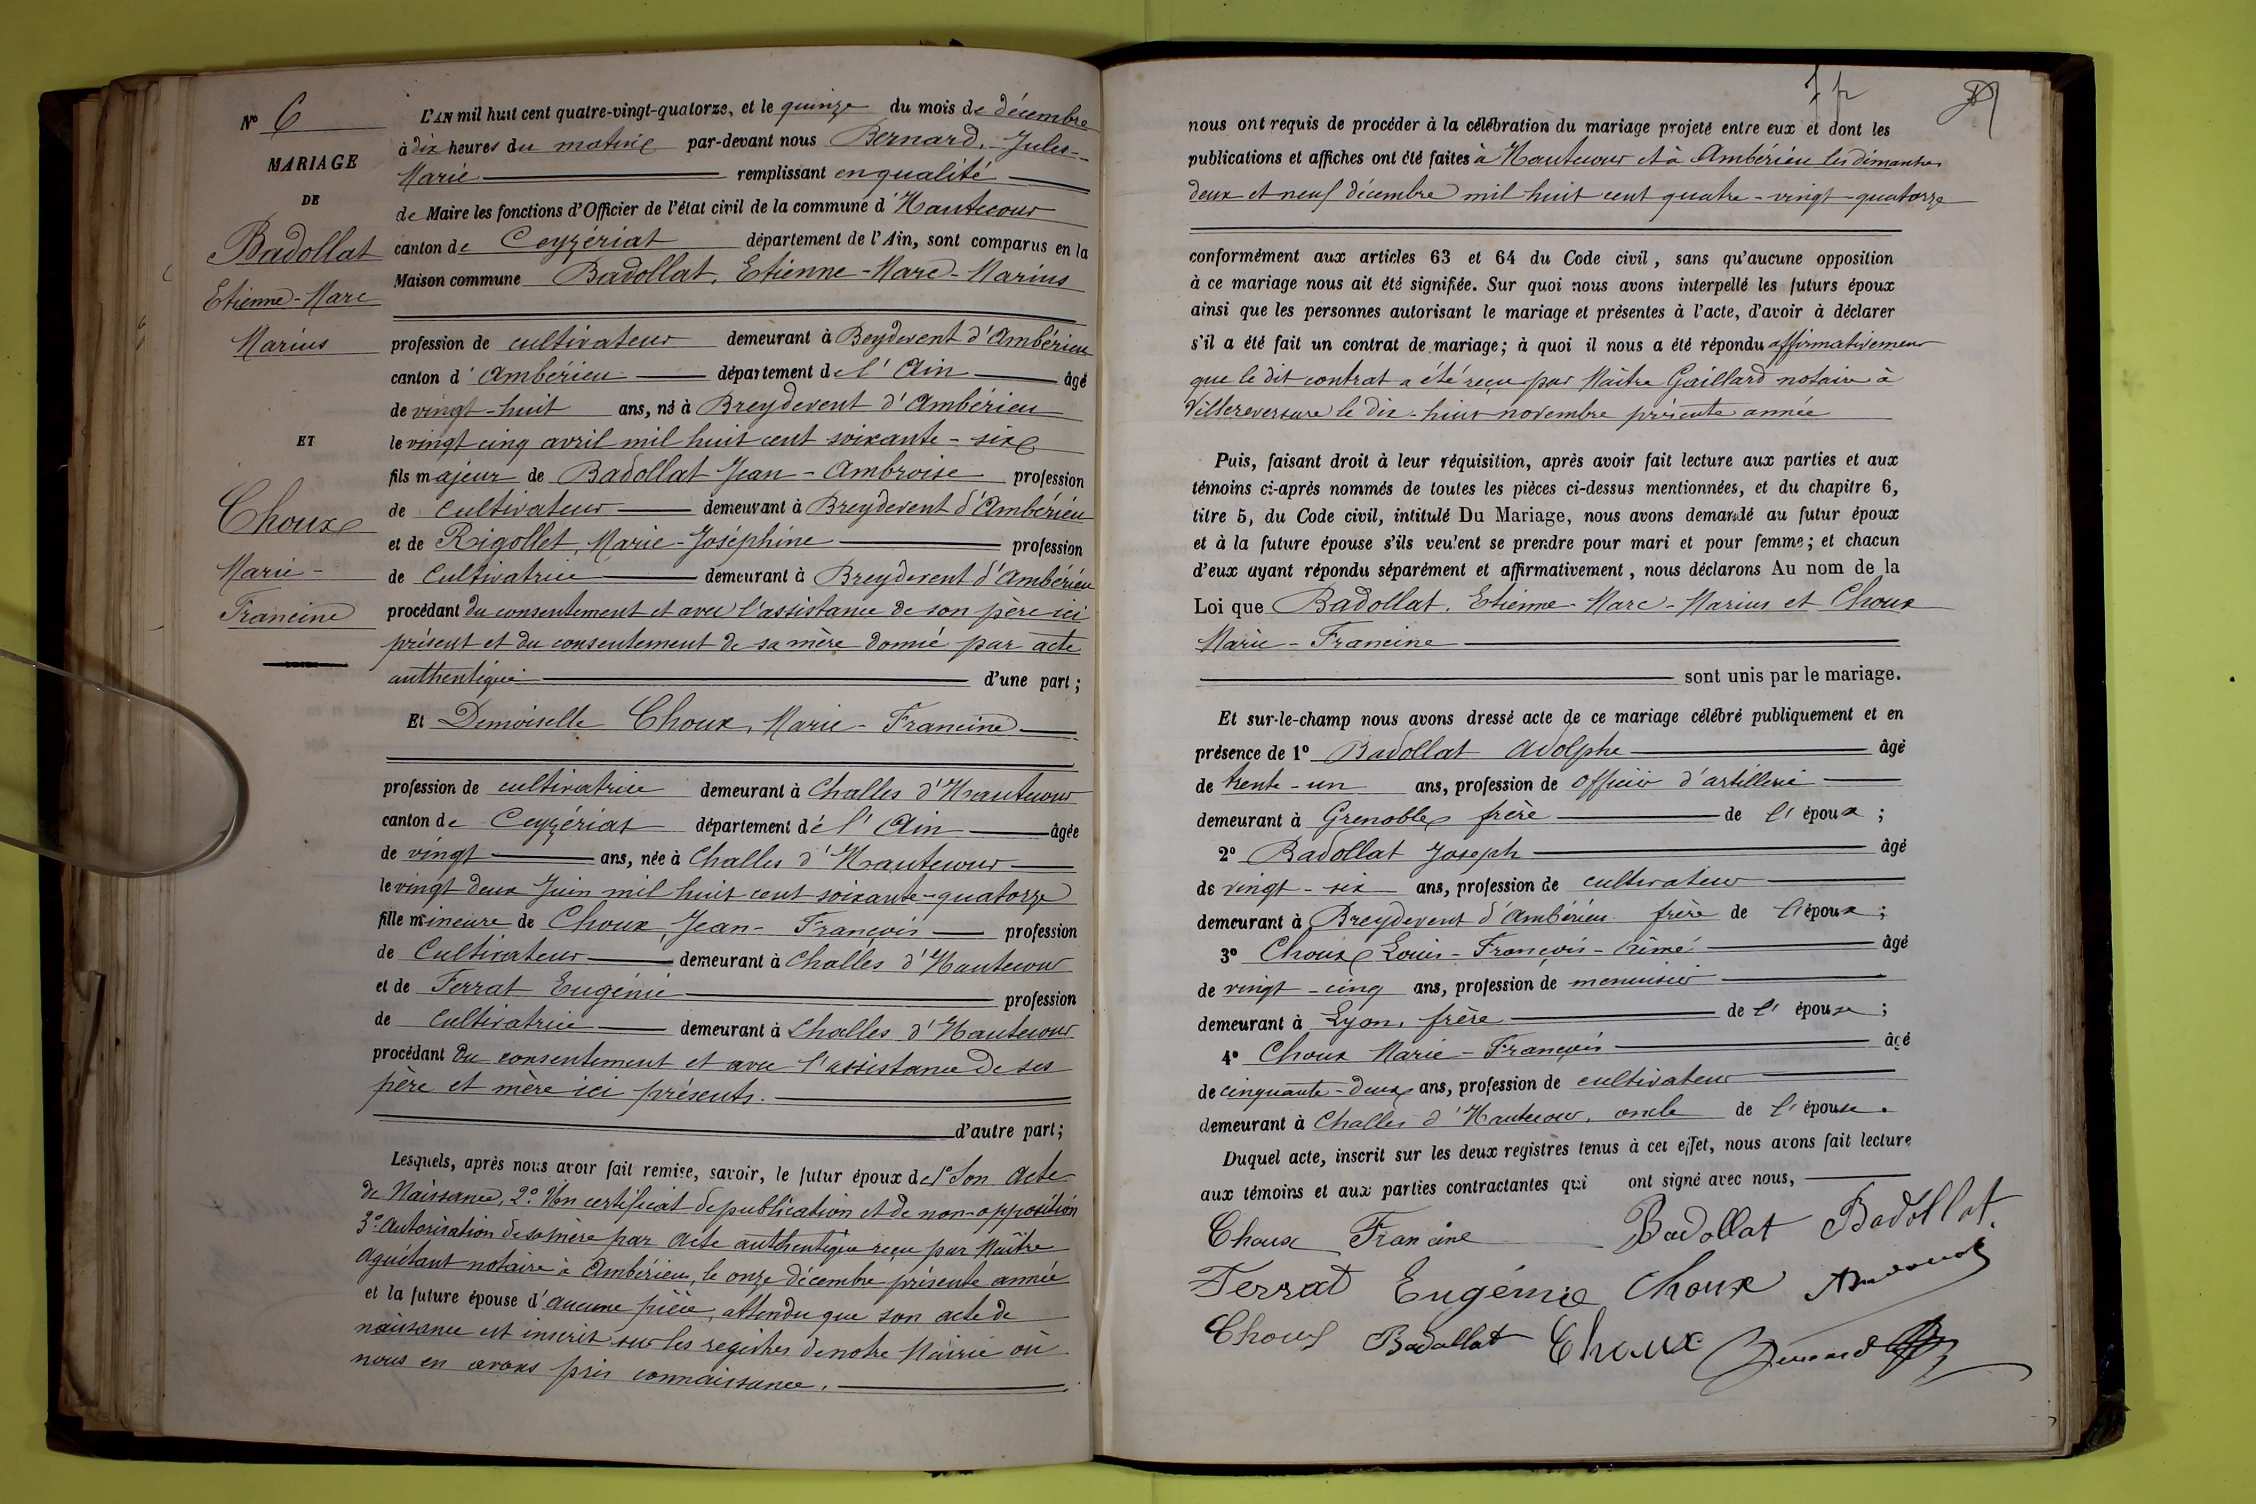 Nº 6
MARIAGE
DE
Badollat
Etienne-Marc
Marius
ET
Choux
Marie-
Francine
L'AN mil huit cent quatre-vingt-quatorze, et le quinze du mois de décembre
à dix heures du matin par-devant nous Bernard, Jules-
Marie remplissant en qualité
de Maire les fonctions d'Officier de l'état civil de la commune d'Hautecour
canton de Ceyzériat département de l'Ain, sont comparus en la
Maison commune Badollat, Etienne-Marc-Marius
profession de cultivateur demeurant à Beydevent d'Ambérieu
canton d'Ambérieu département de l'Ain âgé
de vingt-huit ans, né à Breydevent d'Ambérieu
le vingt cinq avril mil huit cent soixante-six
fils majeur de Badollat Jean-Ambroise profession
de Cultivateur demeurant à Breydevent d'Ambérieu
et de Rigollet, Marie-Joséphine profession
de Cultivatrice demeurant à Breydevent d'Ambérieu
procédant du consentement et avec l'assistance de son père ici
présent et du consentement de sa mère donné par acte
authentique d'une part;
Et Demoiselle Choux, Marie-Francine
profession de cultivatrice demeurant à Challes d'Hautecour
canton de Ceyzériat département de l'Ain âgée
de vingt ans, née à Challes d'Hautecour
le vingt deux Juin mil huit cent soixante-quatorze
fille mineure de Choux, Jean-François profession
de Cultivateur demeurant à Challes d'Hautecour
et de Ferrat Eugénie profession
de Cultivatrice demeurant à Challes d'Hautecour
procédant du consentement et avec l'assistance de ses
père et mère ici présents.
d'autre part;
Lesquels, après nous avoir fait remise, savoir, le futur époux de 1º Son Acte
de Naissance, 2º Un certificat de publication et de non-opposition
3º Autorisation de sa mère par Acte authentique reçu par Maître
Aguétant notaire à Ambérieu, le onze décembre présente année
et la future épouse d'aucune pièce, attendu que son acte de
naissance est inscrit sur les registres de notre Mairie où
nous en avons pris connaissance.
nous ont requis de procéder à la célébration du mariage projeté entre eux et dont les
publications et affiches ont été faites à Hautecour et à Ambérieu les dimanches
deux et neuf décembre mil huit cent quatre-vingt-quatorze
conformément aux articles 63 et 64 du Code civil, sans qu'aucune opposition
à ce mariage nous ait été signifiée. Sur quoi nous avons interpellé les futurs époux
ainsi que les personnes autorisant le mariage et présentes à l'acte, d'avoir à déclarer
s'il a été fait un contrat de mariage; à quoi il nous a été répondu affirmativement
que le dit contrat a été reçu par Maître Gaillard notaire à
Villereversure le dix-huit novembre présente année
Puis, faisant droit à leur réquisition, après avoir fait lecture aux parties et aux
témoins ci-après nommés de toutes les pièces ci-dessus mentionnées, et du chapitre 6,
titre 5, du Code civil, intitulé Du Mariage, nous avons demandé au futur époux
et à la future épouse s'ils veulent se prendre pour mari et pour femme; et chacun
d'eux ayant répondu séparément et affirmativement, nous déclarons Au nom de la
Loi que Badollat, Etienne-Marc-Marius et Choux
Marie-Francine
sont unis par le mariage.
Et sur-le-champ nous avons dressé acte de ce mariage célébré publiquement et en
présence de 1º Badollat Adolphe âgé
de trente-un ans, profession de officier d'artillerie
demeurant à Grenoble, frère de l'époux;
2º Badollat Joseph âgé
de vingt-six ans, profession de cultivateur
demeurant à Breydevent d'Ambérieu frère de l'époux;
3º Choux Louis-François-Aimé âgé
de vingt-cinq ans, profession de menuisier
demeurant à Lyon, frère de l'épouse;
4º Choux Marie-François âgé
de cinquante-deux ans, profession de cultivateur
demeurant à Challes d'Hautecour, oncle de l'épouse.
Duquel acte, inscrit sur les deux registres tenus à cet effet, nous avons fait lecture
aux témoins et aux parties contractantes qui ont signé avec nous,
Choux Francine Badollat Badollat
Ferrat Eugénie Choux
Choux Badollat Choux Bernard